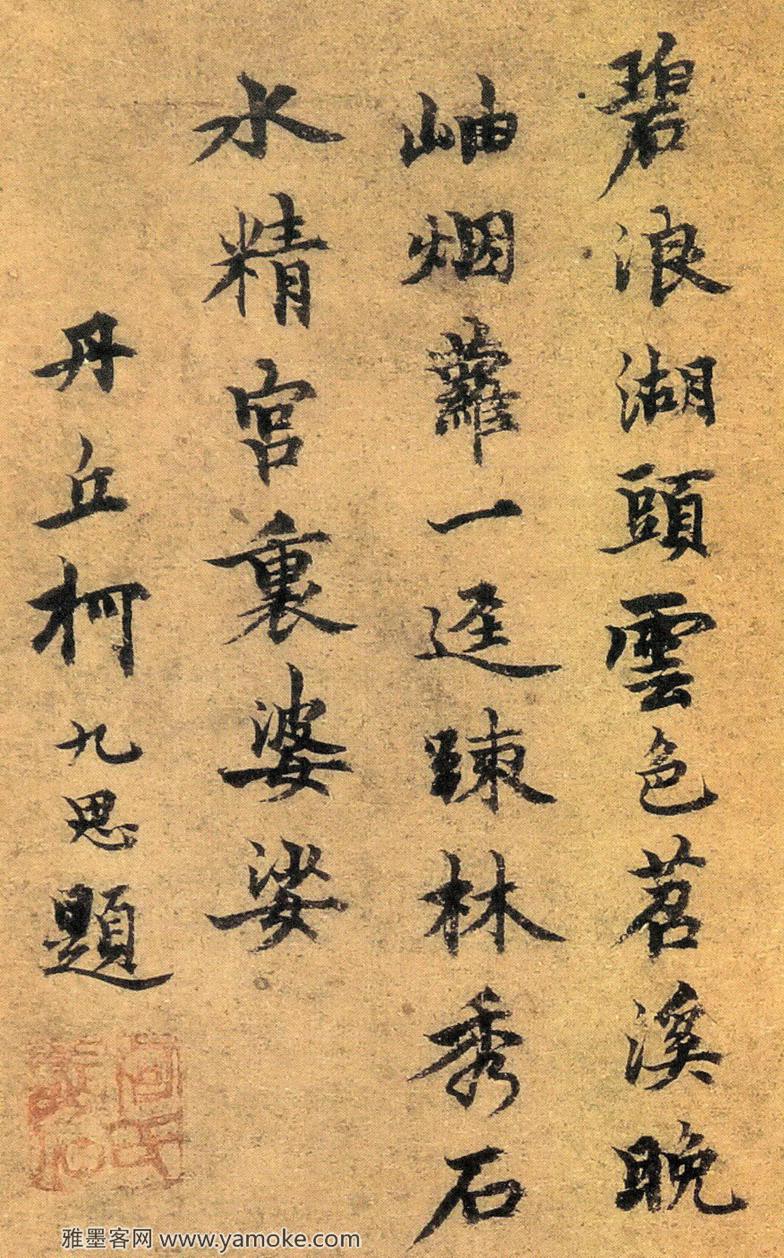 碧浪湖頭雲色苕溪晚
岫烟蘿一逕踈林秀石
水精宮裏婆娑
丹丘柯九思題
雅墨客网 www.yamoke.com